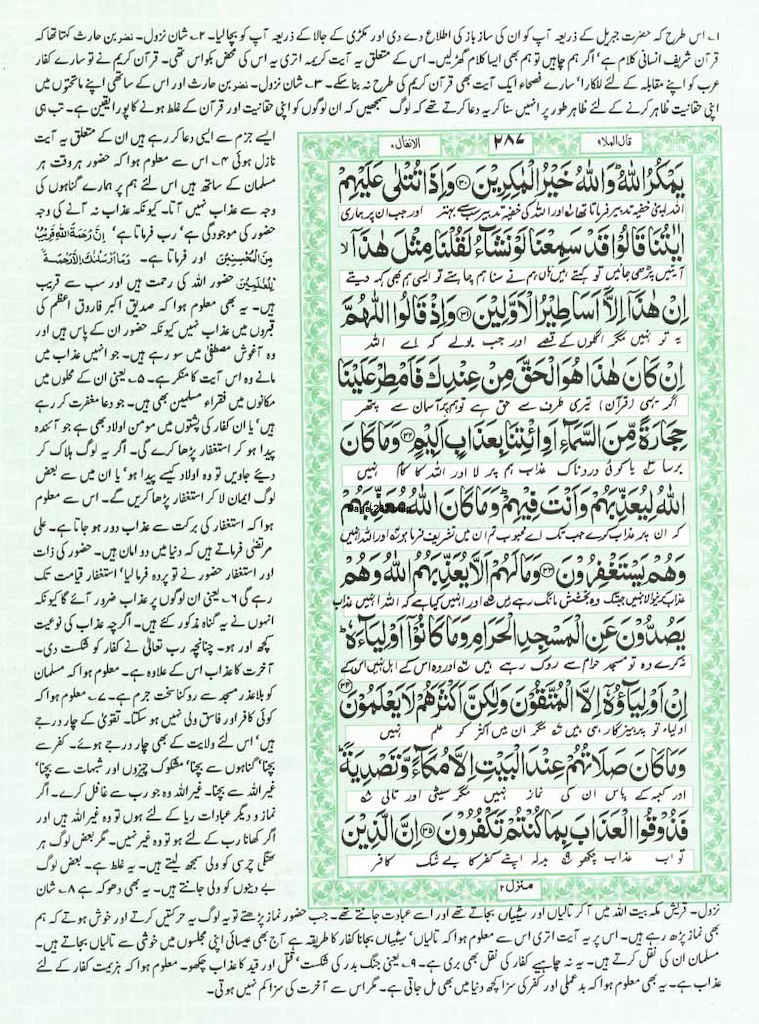 ۱۔ اس طرح کہ حضرت جبریل کے ذریعہ آپ کو ان کی ساز باز کی اطلاع دے دی اور مکڑی کے جالا کے ذریعہ آپ کو بچا لیا۔ ۲۔ شان نزول۔ نضر بن حارث کہتا تھا کہ
قرآن شریف انسانی کلام ہے' اگر ہم چاہیں تو ہم بھی ایسا کلام گھڑ لیں۔ اس کے متعلق یہ آیت کریمہ اتری یہ اس کی محض بکواس تھی۔ قرآن کریم نے تو سارے کفار
عرب کو اپنے مقابلہ کے لئے للکارا' سارے فصحاء ایک آیت بھی قرآن کریم کی طرح نہ بنا سکے۔ ۳۔ شان نزول۔ نضر بن حارث اور اس کے ساتھی اپنے ماتحتوں میں
اپنی حقانیت ظاہر کرنے کے لئے ظاہر طور پر انہیں سنا کر یہ دعا کرتے تھے کہ لوگ سمجھیں کہ ان لوگوں کو اپنی حقانیت اور قرآن کے غلط ہونے کا پورا یقین ہے۔ تب ہی
قال الملا ۹
۲۸۷
الانفال ۸
يَمْكُرُ اللّٰهُ ؕ وَاللّٰهُ خَيْرُ الْمٰكِرِيْنَ ۳۰ وَاِذَا تُتْلٰى عَلَيْهِمْ
اللہ اپنی خفیہ تدبیر فرماتا تھا اور اللہ کی خفیہ تدبیر سب سے بہتر اور جب ان پر ہماری
اٰيٰتُنَا قَالُوْا قَدْ سَمِعْنَا لَوْ نَشَآءُ لَقُلْنَا مِثْلَ هٰذَاۤ ۙ
آیتیں پڑھی جائیں تو کہتے ہیں ہاں ہم نے سنا ہم چاہتے تو ایسی ہم بھی کہہ دیتے
اِنْ هٰذَاۤ اِلَّاۤ اَسَاطِيْرُ الْاَوَّلِيْنَ ۳۱ وَاِذْ قَالُوا اللّٰهُمَّ
یہ تو نہیں مگر اگلوں کے قصے اور جب بولے کہ اے اللہ
اِنْ كَانَ هٰذَا هُوَ الْحَقَّ مِنْ عِنْدِكَ فَاَمْطِرْ عَلَيْنَا
اگر یہی (قرآن) تیری طرف سے حق ہے تو ہم پر آسمان سے پتھر
حِجَارَةً مِّنَ السَّمَآءِ اَوِ ائْتِنَا بِعَذَابٍ اَلِيْمٍ ۳۲ وَمَا كَانَ
برسا یا کوئی دردناک عذاب ہم پر لا اور اللہ کا کام نہیں
اللّٰهُ لِيُعَذِّبَهُمْ وَاَنْتَ فِيْهِمْ ؕ وَمَا كَانَ اللّٰهُ مُعَذِّبَهُمْ
کہ ان پر عذاب کرے جب تک اے محبوب تم ان میں تشریف فرما ہو اور اللہ انہیں
وَهُمْ يَسْتَغْفِرُوْنَ ۳۳ وَمَا لَهُمْ اَلَّا يُعَذِّبَهُمُ اللّٰهُ وَهُمْ
عذاب کرنے والا نہیں جب تک وہ بخشش مانگ رہے ہیں اور انہیں کیا ہے کہ اللہ انہیں عذاب
يَصُدُّوْنَ عَنِ الْمَسْجِدِ الْحَرَامِ وَمَا كَانُوْۤا اَوْلِيَآءَهٗ ؕ
نہ کرے وہ تو مسجد حرام سے روک رہے ہیں اور وہ اس کے اہل نہیں اس کے
اِنْ اَوْلِيَآؤُهٗۤ اِلَّا الْمُتَّقُوْنَ وَلٰكِنَّ اَكْثَرَهُمْ لَا يَعْلَمُوْنَ ۳۴
اولیاء تو پرہیزگار ہی ہیں مگر ان میں اکثر کو علم نہیں
وَمَا كَانَ صَلَاتُهُمْ عِنْدَ الْبَيْتِ اِلَّا مُكَآءً وَّتَصْدِيَةً ؕ
اور کعبہ کے پاس ان کی نماز نہیں مگر سیٹی اور تالی
فَذُوْقُوا الْعَذَابَ بِمَا كُنْتُمْ تَكْفُرُوْنَ ۳۵ اِنَّ الَّذِيْنَ
تو اب عذاب چکھو بدلہ اپنے کفر کا بے شک کافر
منزل ۲
ایسے جزم سے ایسی دعا کر رہے ہیں ان کے متعلق یہ آیت
نازل ہوئی ۴۔ اس سے معلوم ہوا کہ حضور ہر وقت ہر
مسلمان کے ساتھ ہیں اس لئے ہم پر ہمارے گناہوں کی
وجہ سے عذاب نہیں آتا۔ کیونکہ عذاب نہ آنے کی وجہ
حضور کی موجودگی ہے' رب فرماتا ہے' اِنَّ رَحْمَةَ اللّٰهِ قَرِيْبٌ
مِّنَ الْمُحْسِنِيْنَ اور فرماتا ہے۔ وَمَاۤ اَرْسَلْنٰكَ اِلَّا رَحْمَةً
لِّلْعٰلَمِيْنَ حضور اللہ کی رحمت ہیں اور سب سے قریب
ہیں۔ یہ بھی معلوم ہوا کہ صدیق اکبر فاروق اعظم کی
قبروں میں عذاب نہیں کیونکہ حضور ان کے پاس ہیں اور
وہ آغوش مصطفیٰ میں سو رہے ہیں۔ جو انہیں عذاب میں
مانے وہ اس آیت کا منکر ہے۔ ۵۔ یعنی ان کے محلوں میں
مکانوں میں فقراء مسلمین بھی ہیں۔ جو دعا مغفرت کر رہے
ہیں' یا ان کفار کی پشتوں میں مومن اولاد بھی ہے جو آئندہ
پیدا ہو کر استغفار پڑھا کرے گی۔ اگر یہ لوگ ہلاک کر
دیئے جاویں تو وہ اولاد کیسے پیدا ہو' یا ان میں سے بعض
لوگ ایمان لا کر استغفار پڑھا کریں گے۔ اس سے معلوم
ہوا کہ استغفار کی برکت سے عذاب دور ہو جاتا ہے۔ علی
مرتضیٰ فرماتے ہیں کہ دنیا میں دو امان ہیں۔ حضور کی ذات
اور استغفار حضور نے تو پردہ فرما لیا' استغفار قیامت تک
رہے گی ۶۔ یعنی ان لوگوں پر عذاب ضرور آئے گا کیونکہ
انہوں نے یہ گناہ مذکور کئے ہیں۔ اگرچہ عذاب کی نوعیت
کچھ اور ہو۔ چنانچہ رب تعالیٰ نے کفار کو شکست دی۔
آخرت کا عذاب اس کے علاوہ ہے۔ معلوم ہوا کہ مسلمان
کو بلاعذر مسجد سے روکنا سخت جرم ہے۔ ۷۔ معلوم ہوا کہ
کوئی کافر اور فاسق ولی نہیں ہو سکتا۔ تقویٰ کے چار درجے
ہیں' اس لئے ولایت کے بھی چار درجے ہوئے۔ کفر سے
بچنا' گناہوں سے بچنا' مشکوک چیزوں اور شبہات سے بچنا'
غیراللہ سے بچنا۔ غیراللہ وہ جو رب سے غافل کرے۔ اگر
نماز و دیگر عبادات ریا کے لئے ہوں تو وہ غیر اللہ ہیں اور
اگر کھانا رب کے لئے ہو تو وہ غیر نہیں۔ مگر بعض لوگ ہر
بھنگی چرسی کو ولی سمجھ لیتے ہیں۔ یہ غلط ہے۔ بعض لوگ
بے دینوں کو ولی جانتے ہیں۔ یہ بھی دھوکہ ہے ۸۔ شان
نزول۔ قریش مکہ بیت اللہ میں آ کر تالیاں اور سیٹیاں بجاتے تھے اور اسے عبادت جانتے تھے۔ جب حضور نماز پڑھتے تو یہ لوگ یہ حرکتیں کرتے اور خوش ہوتے کہ ہم
بھی نماز پڑھ رہے ہیں۔ اس پر یہ آیت اتری اس سے معلوم ہوا کہ تالیاں' سیٹیاں بجانا کفار کا طریقہ ہے آج بھی عیسائی اپنی مجلسوں میں خوشی سے تالیاں بجاتے ہیں۔
مسلمان ان کی نقل کرتے ہیں۔ یہ نہ چاہیے کفار کی نقل بھی بری ہے۔ ۹۔ یعنی جنگ بدر کی شکست' قتل اور قید کا عذاب چکھو۔ معلوم ہوا کہ ہزیمت کفار کے لئے
عذاب ہے۔ یہ بھی معلوم ہوا کہ بدعملی اور کفر کی سزا کچھ دنیا میں بھی مل جاتی ہے۔ مگر اس سے آخرت کی سزا کم نہیں ہوتی۔